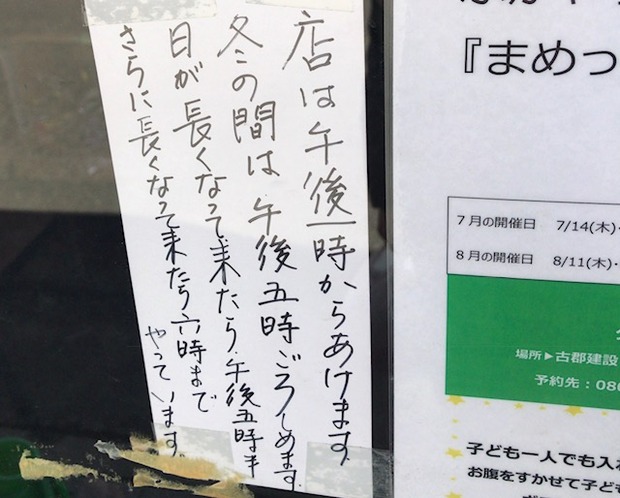 店は午後一時からあけます
冬の間は午後五時ごろしめます
日が長くなって来たら午後五時半
さらに長くなって来たら六時まで
やっています
『まめっ
7月の開催日 7/14(木)・
8月の開催日 8/11(木)・
場所▶古郡建設
予約先：080
子ども一人でも入れ
お腹をすかせて子ども